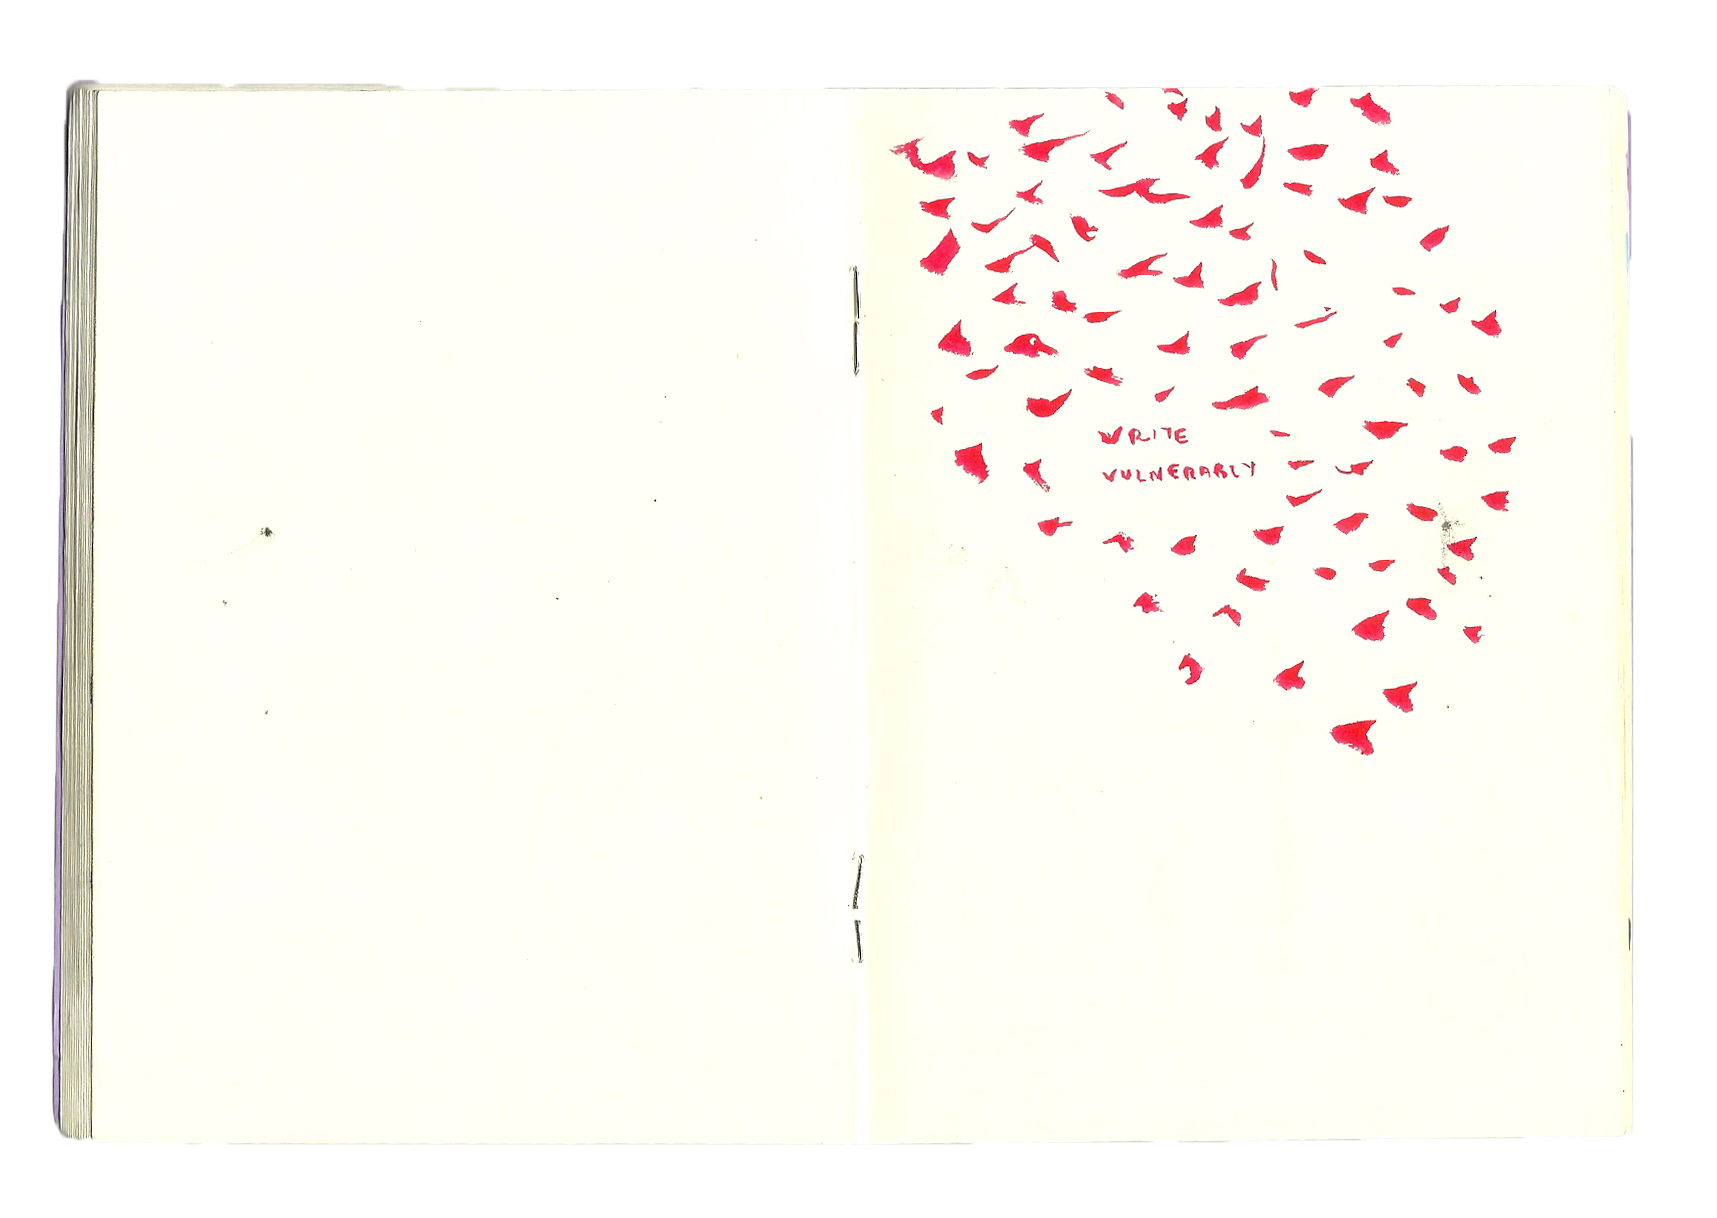 WRITE
VULNERABLY